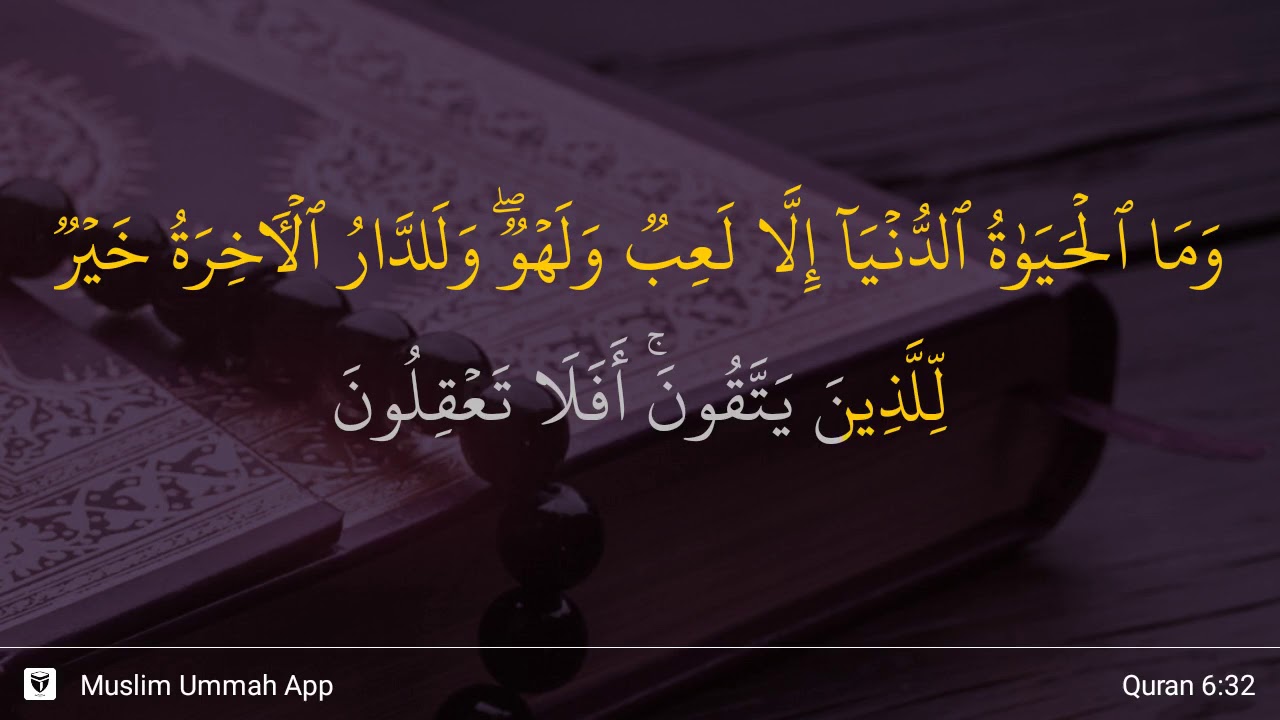 وَمَا ٱلْحَيَوٰةُ ٱلدُّنْيَآ إِلَّا لَعِبٌ وَلَهْوٌ ۖ وَلَلدَّارُ ٱلْـَٔاخِرَةُ خَيْرٌ
لِّلَّذِينَ يَتَّقُونَ ۚ أَفَلَا تَعْقِلُونَ
Muslim Ummah App
Quran 6:32